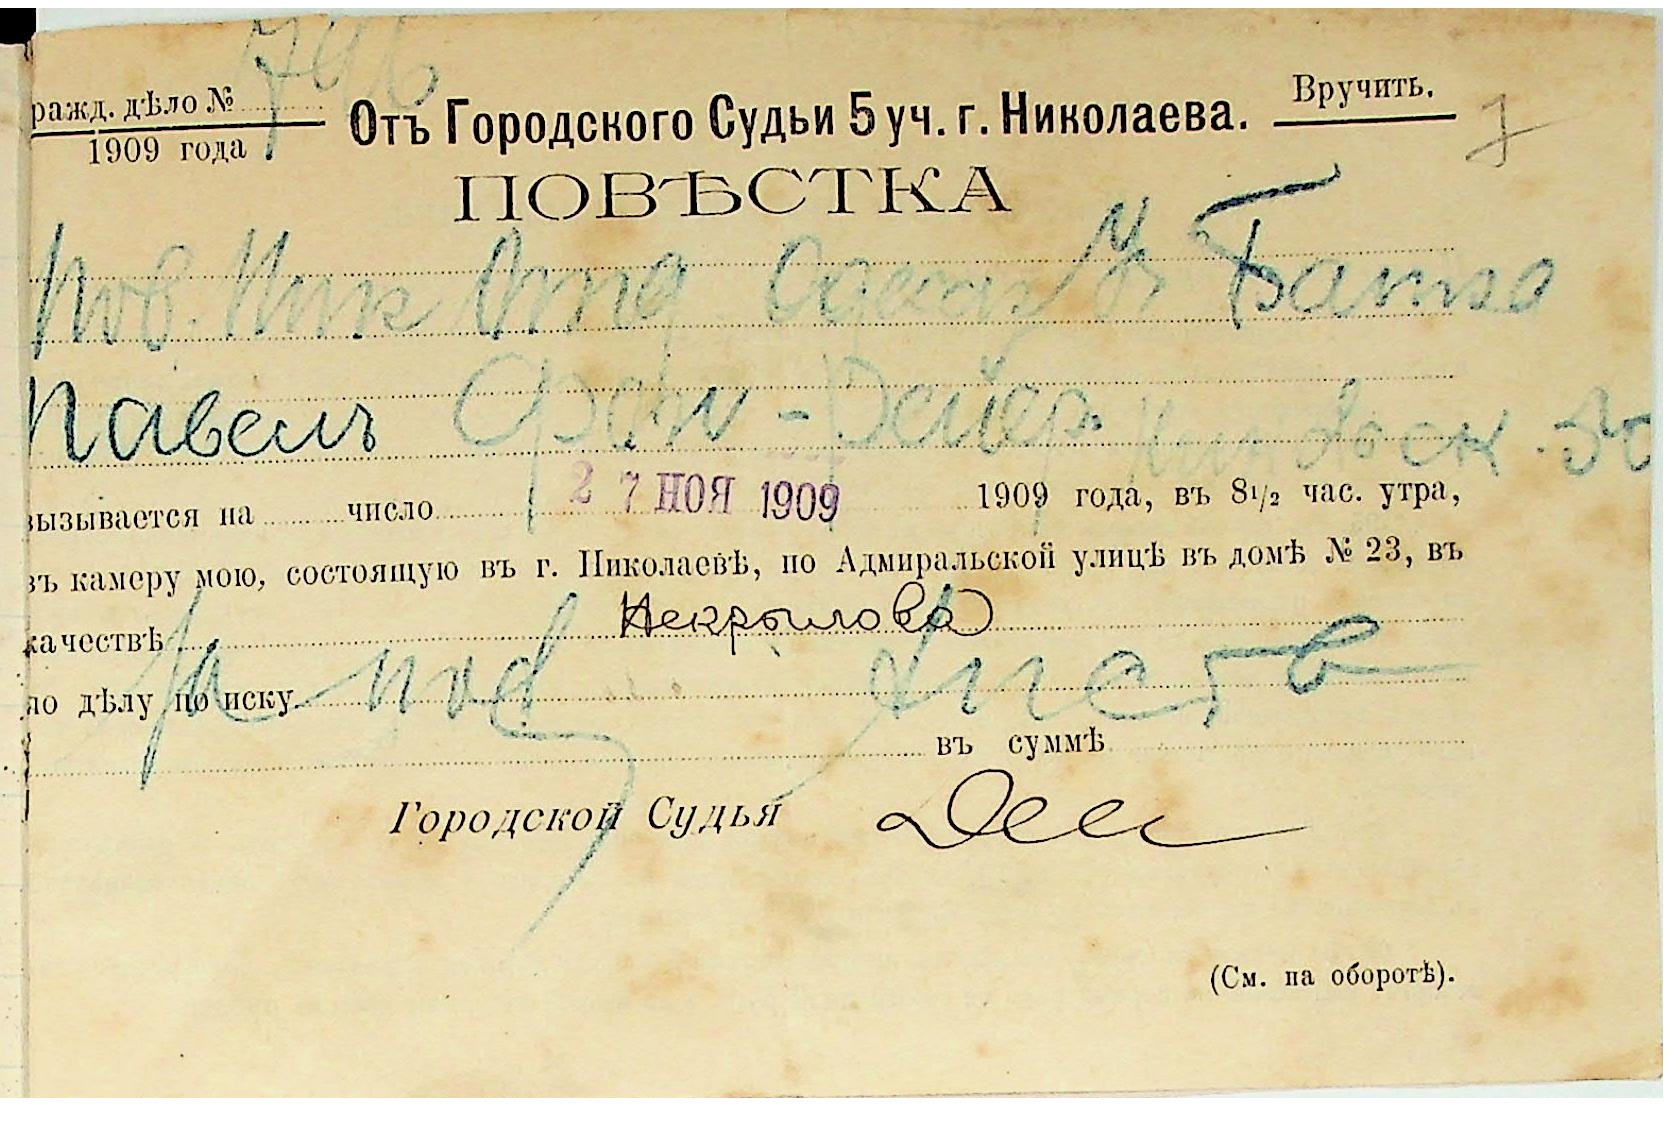 ражд. дѣло № 796
1909 года
Отъ Городского Судьи 5 уч. г. Николаева.
Вручить.
ПОВѢСТКА
Пов. Ник Отд. Одесс Уч Банка
Павелъ Фон-Рейер
вызывается на число 27 НОЯ 1909 1909 года, въ 8 1/2 час. утра,
въ камеру мою, состоящую въ г. Николаевѣ, по Адмиральской улицѣ въ домѣ № 23, въ
качествѣ Некрылова
по дѣлу по иску
въ суммѣ
Городской Судья
(См. на оборотѣ).